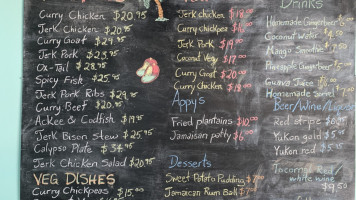 Curry Chicken $20.95
Jerk Chicken $20.95
Curry Goat $29.95
Jerk Pork $23.95
Ox-Tail $28.95
Spicy Fish $25.95
Jerk Pork Ribs $29.95
Curry Beef $20.95
Ackee & Codfish $19.95
Jerk Bison Stew $25.95
Calypso Plate $34.95
Jerk Chicken Salad $20.95
VEG DISHES
Curry Chickpeas $15.00
Jerk chicken $18.50
Curry chickpea
Jerk Pork $19.00
Coconut Veg $17.00
Curry Goat
Curry Chicken $18.00
Appys
Fried plantains $10.00
Jamaican patty $6.00
Desserts
Sweet Potato Pudding
Jamaican Rum Ball $7.00
DRINKS
Homemade Gingerbeer
Coconut Water
Mango Smoothie
Pineapple Gingerbeer
Guava Juice
Homemade Sorrel $7.50
Beer/Wine/
Red stripe
Yukon gold $5.95
Yukon red $5.95
white wine
$9.50